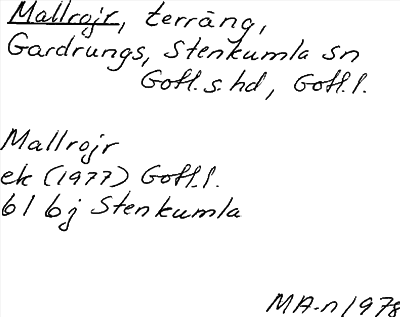 Mallrojr, terräng,
Gardrungs, Stenkumla sn
Gotl. s. hd, Gotl. l.
Mallrojr
ek (1977) Gotl. l.
bl bj Stenkumla
MA-n 1978